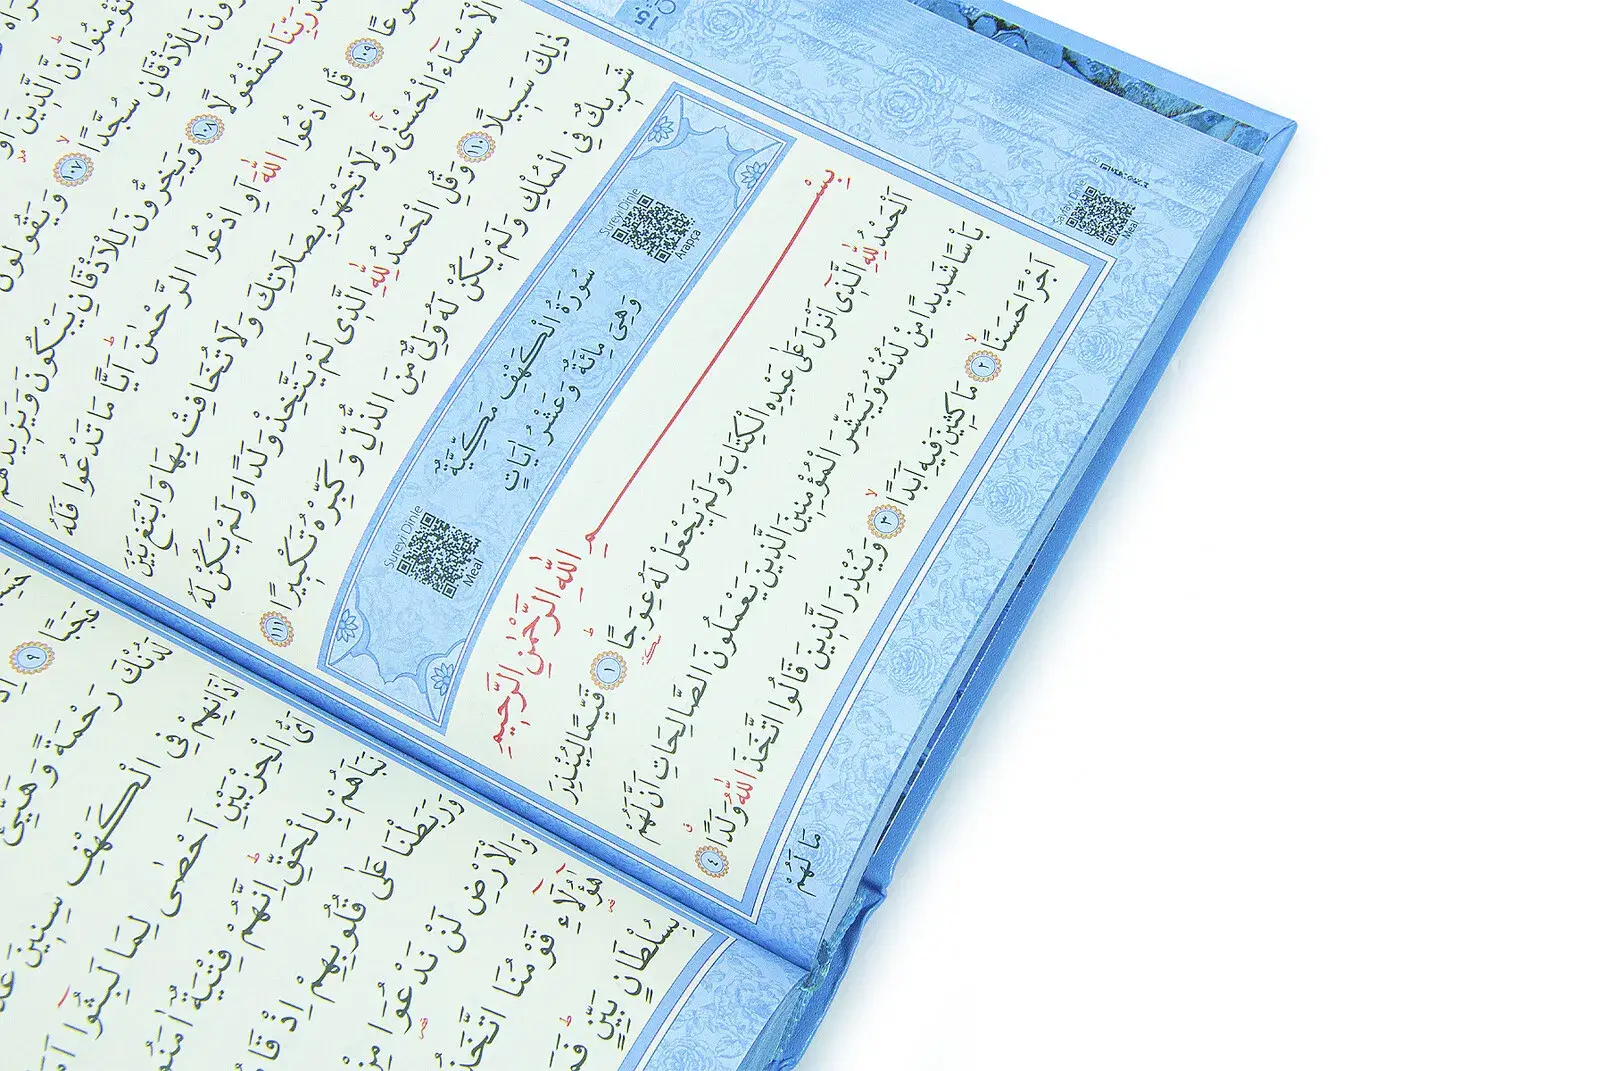 تُؤْمِنُوا اِنَّ الَّذِينَ
لِلْاَذْقَانِ سُجَّدًا ﴿١٠٧﴾ وَيَقُولُونَ
رَبِّنَا لَمَفْعُولًا ﴿١٠٨﴾ وَيَخِرُّونَ لِلْاَذْقَانِ يَبْكُونَ وَيَزِيدُهُمْ
﴿١٠٩﴾ قُلِ ادْعُوا اللّٰهَ اَوِ ادْعُوا الرَّحْمٰنَ اَيًّا مَا تَدْعُوا فَلَهُ
الْاَسْمَاءُ الْحُسْنٰى وَلَا تَجْهَرْ بِصَلَاتِكَ وَلَا تُخَافِتْ بِهَا وَابْتَغِ بَيْنَ
ذٰلِكَ سَبِيلًا ﴿١١٠﴾ وَقُلِ الْحَمْدُ لِلّٰهِ الَّذِى لَمْ يَتَّخِذْ وَلَدًا وَلَمْ يَكُنْ لَهُ
شَرِيكٌ فِى الْمُلْكِ وَلَمْ يَكُنْ لَهُ وَلِىٌّ مِنَ الذُّلِّ وَكَبِّرْهُ تَكْبِيرًا ﴿١١١﴾
Sureyi Dinle
Arapça
سُورَةُ الْكَهْفِ مَكِّيَّةٌ
وَهِىَ مِائَةٌ وَعَشْرُ اٰيَاتٍ
Sureyi Dinle
Meal
بِسْمِ اللّٰهِ الرَّحْمٰنِ الرَّحِيمِ
اَلْحَمْدُ لِلّٰهِ الَّذِى اَنْزَلَ عَلٰى عَبْدِهِ الْكِتَابَ وَلَمْ يَجْعَلْ لَهُ عِوَجًا ﴿١﴾ قَيِّمًا لِيُنْذِرَ
بَاْسًا شَدِيدًا مِنْ لَدُنْهُ وَيُبَشِّرَ الْمُؤْمِنِينَ الَّذِينَ يَعْمَلُونَ الصَّالِحَاتِ اَنَّ لَهُمْ
اَجْرًا حَسَنًا ﴿٢﴾ مَاكِثِينَ فِيهِ اَبَدًا ﴿٣﴾ وَيُنْذِرَ الَّذِينَ قَالُوا اتَّخَذَ اللّٰهُ وَلَدًا ﴿٤﴾
مَا لَهُمْ
15
Sayfayı Dinle
Meal
عَجَبًا ﴿٩﴾
لَدُنْكَ رَحْمَةً وَهَيِّئْ
اٰذَانِهِمْ فِى الْكَهْفِ سِنِينَ
اَىُّ الْحِزْبَيْنِ اَحْصٰى لِمَا لَبِثُوا
نَبَاَهُمْ بِالْحَقِّ اِنَّهُمْ فِتْيَةٌ
وَرَبَطْنَا عَلٰى قُلُوبِهِمْ اِذْ
وَالْاَرْضِ لَنْ نَدْعُوَا مِنْ
هٰؤُلَاءِ قَوْمُنَا
بِسُلْطَانٍ بَيِّنٍ